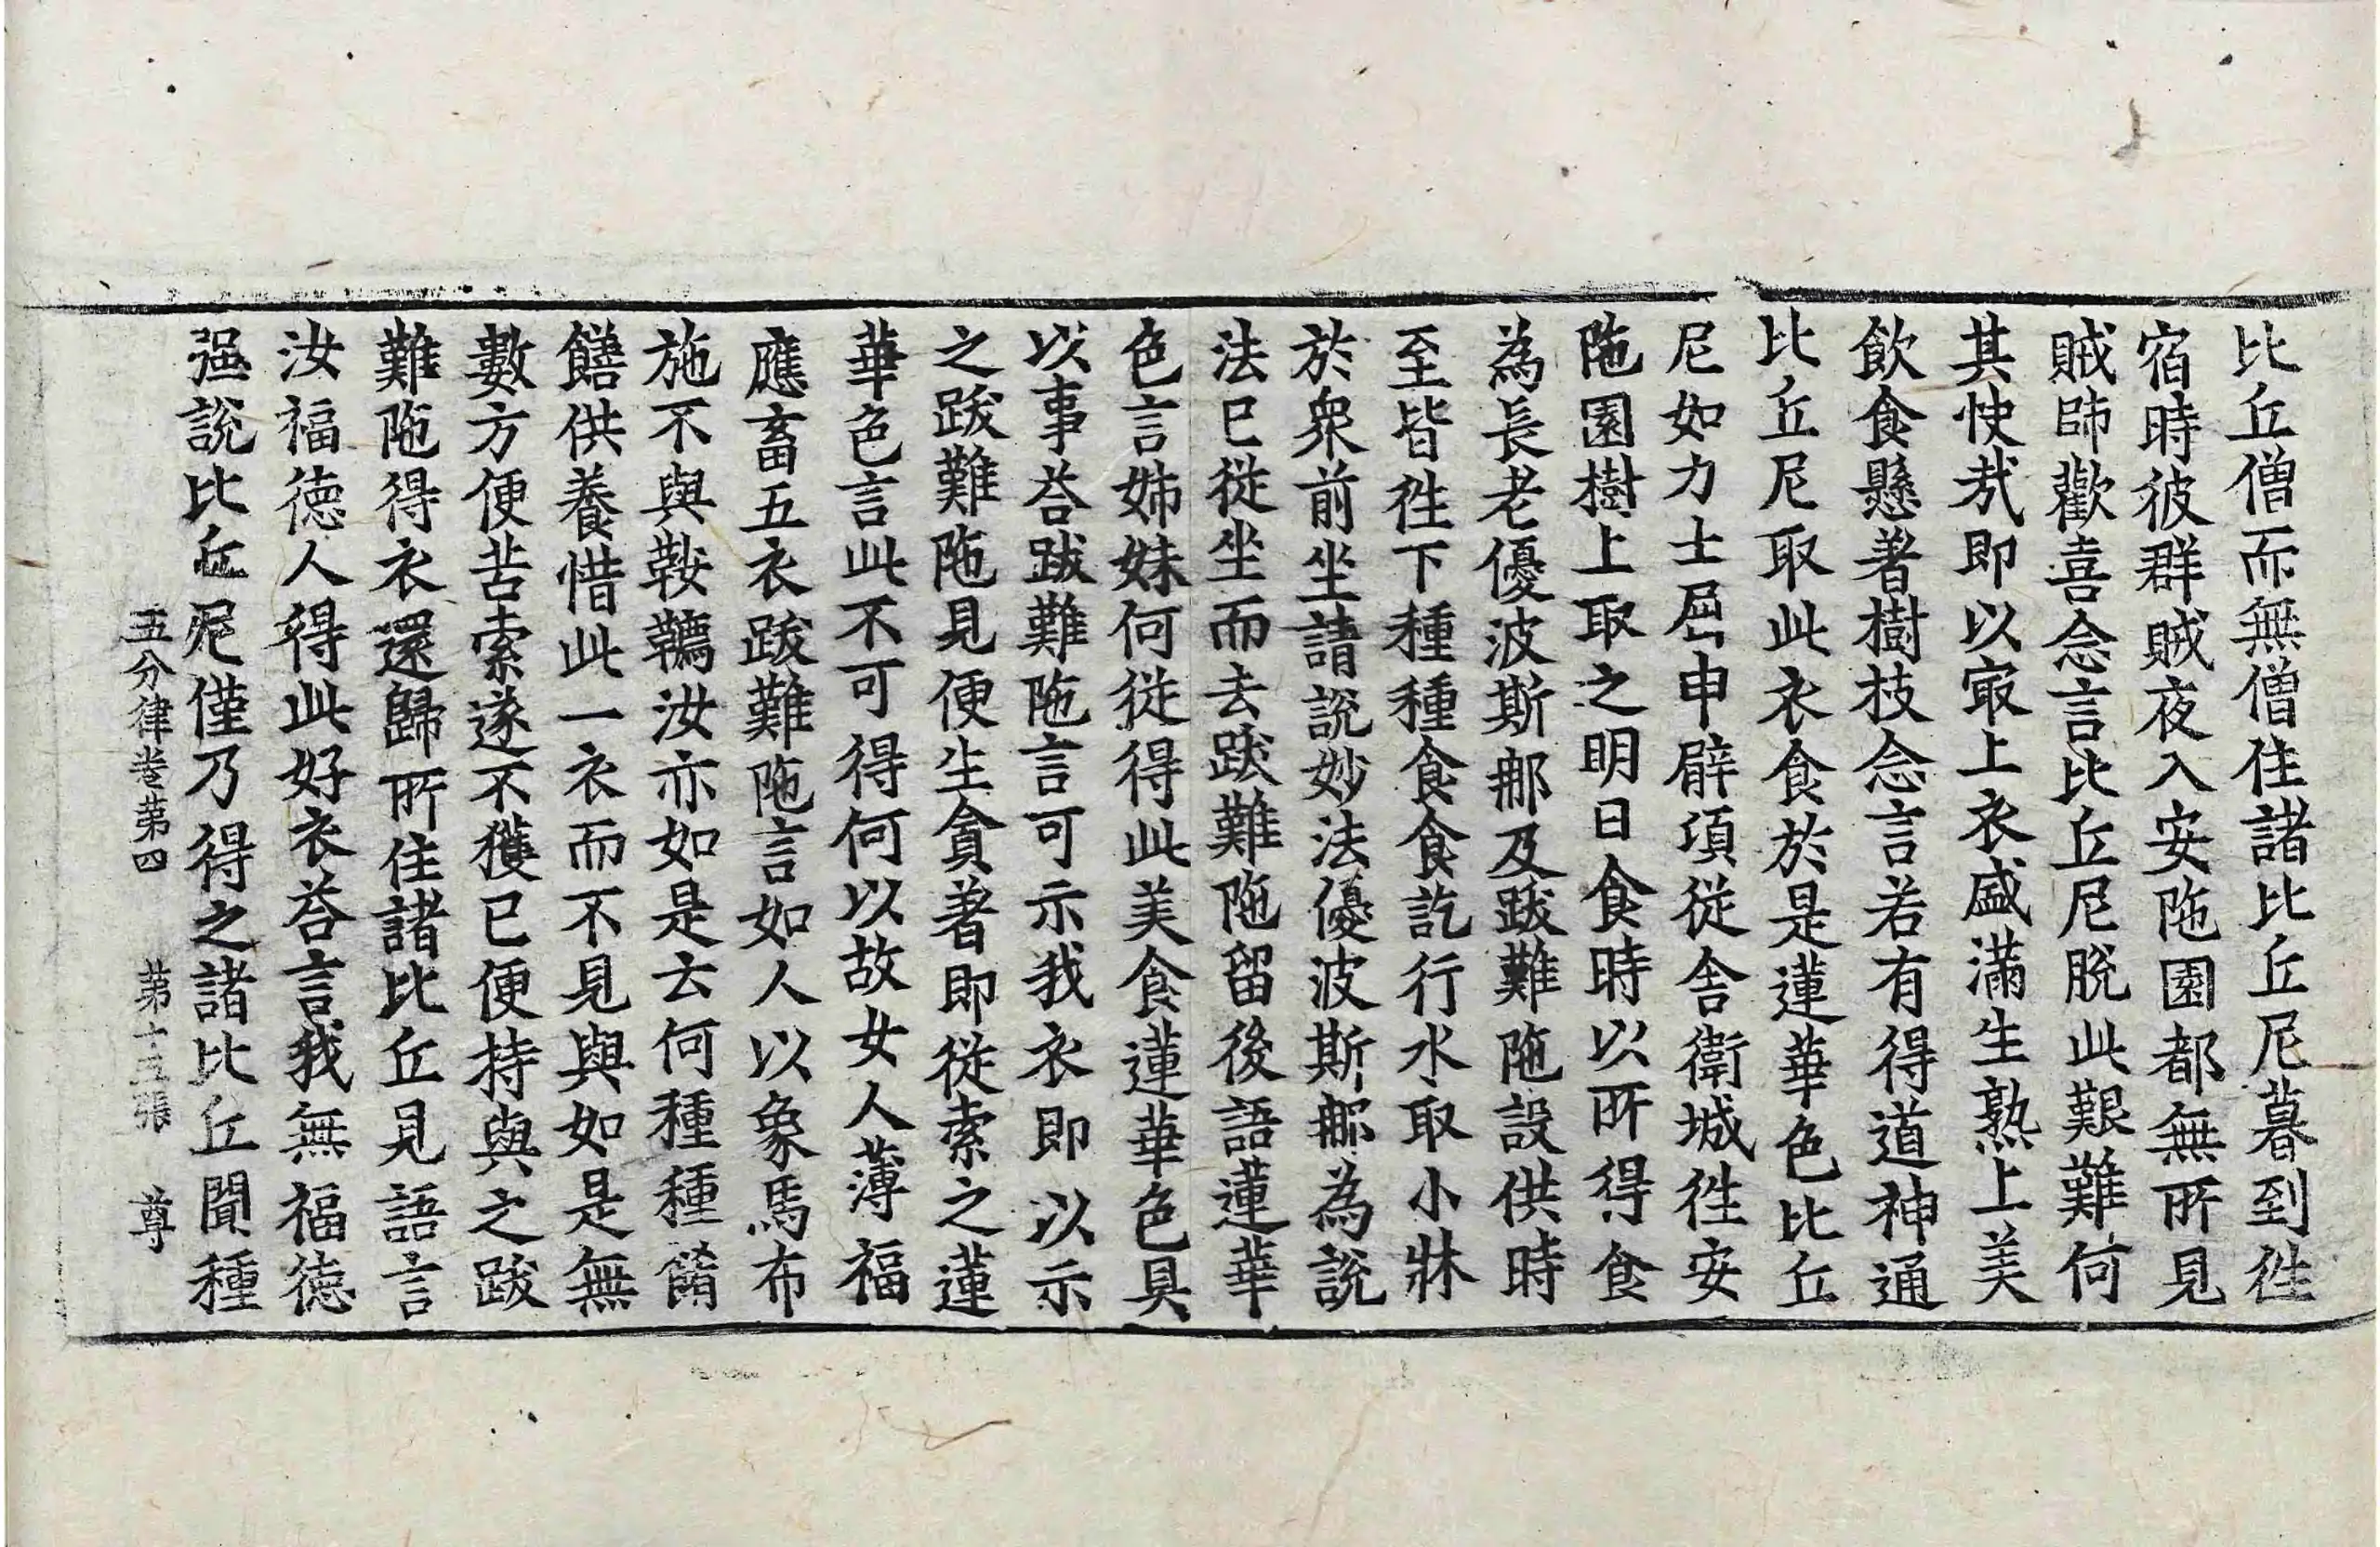 比丘僧而無僧住諸比丘尼暮到徃
宿時彼群賊夜入安陁園都無所見
賊帥歡喜念言比丘尼脫此艱難何
其快㢤即以㝡上衣盛滿生熟上美
飲食懸著樹枝念言若有得道神通
比丘尼取此衣食於是蓮華色比丘
尼如力士屈申臂項從舍衛城徃安
陁園樹上取之明日食時以所得食
為長老優波斯那及跋難陁設供時
至皆徃下種種食食訖行水取小牀
於衆前坐請說妙法優波斯那為說
法已從坐而去跋難陁留後語蓮華
色言姊妹何從得此美食蓮華色具
以事荅跋難陁言可示我衣即以示
之跋難陁見便生貪著即從索之蓮
華色言此不可得何以故女人薄福
應畜五衣跋難陁言如人以象馬布
施不與鞍韉汝亦如是云何種種餚
饍供養惜此一衣而不見與如是無
數方便苦索遂不獲已便持與之跋
難陁得衣還歸所住諸比丘見語言
汝福德人得此好衣荅言我無福德
强說比丘尼僅乃得之諸比丘聞種
五分律卷第四 第十三張 尊